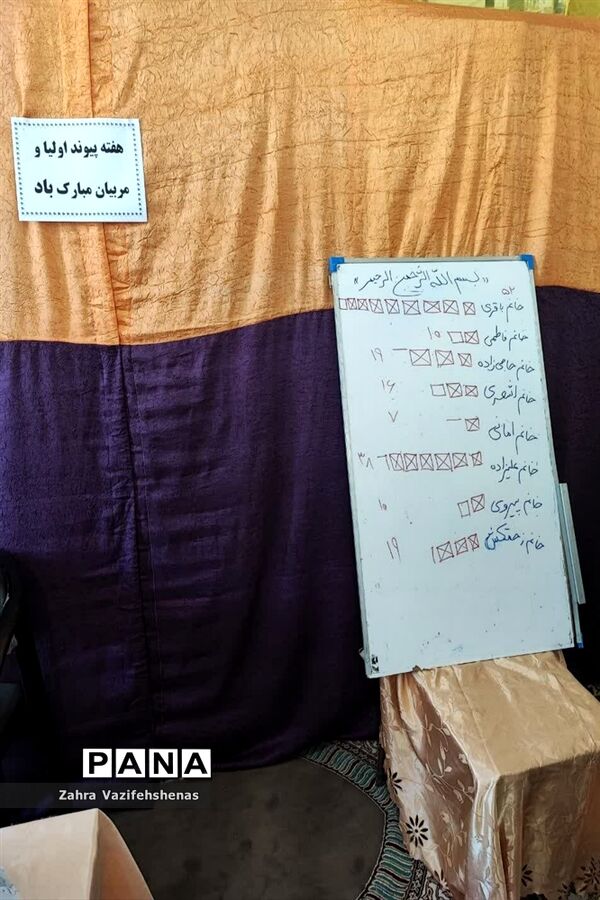 هفته پیوند اولیا و
مربیان مبارک باد
"بسم الله الرحمن الرحیم"
خانم باقری ۵۲
خانم فاطمی ۱۵
خانم حاجی‌زاده ۱۹
خانم اشعری ۱۶
خانم امانی ۷
خانم علیزاده ۳۸
خانم پیروی ۱۰
خانم زحمتکش ۱۹
PANA
Zahra Vazifehshenas